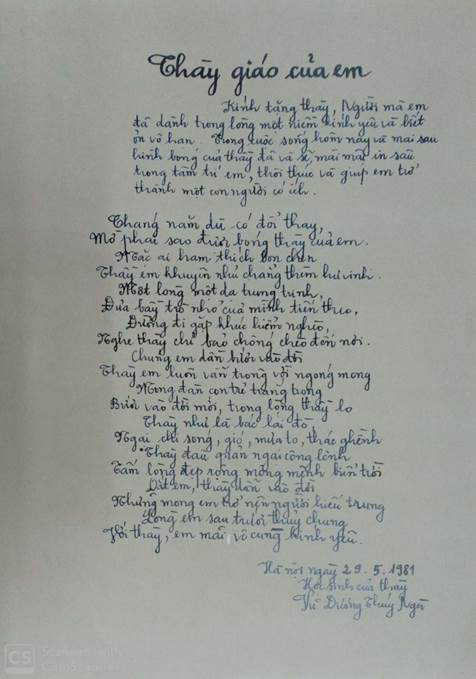 Thầy giáo của em
Kính tặng thầy, Người mà em
đã dành trong lòng một niềm kính yêu và biết
ơn vô hạn. Trong cuộc sống hôm nay và mai sau
hình bóng của thầy đã và sẽ mãi mãi in sâu
trong tâm trí em, thôi thúc và giúp em trở
thành một con người có ích.
Tháng năm dù có đổi thay,
Mờ phai sao được bóng thầy của em.
Mặc ai ham thích bon chen
Thầy em khuyên nhủ chẳng thèm hư vinh.
Một lòng một dạ trung trinh,
Đưa bầy trò nhỏ của mình tiến theo,
Đường đi gặp khúc hiểm nghèo,
Nghe thầy chỉ bảo chông chèo đến nơi.
Chúng em dần bước vào đời
Thầy em luôn vẫn trông vời ngóng mong
Mong đàn con trẻ trắng trong
Bước vào đời mới, trong lòng thầy lo
Thầy như là bác lái đò,
Ngại chi sóng, gió, mưa to, thác ghềnh
Thầy đâu quản ngại công lênh
Tấm lòng đẹp rộng mông mênh biển trời
Dắt em, thầy dẫn vào đời
Những mong em trở nên người hiếu trung
Lòng em sau trước thủy chung
Với thầy, em mãi vô cùng kính yêu.
Hà nội ngày 29.5.1981
Học sinh của thầy
Vũ Dương Thúy Ngà
CS Scanned with
CamScanner